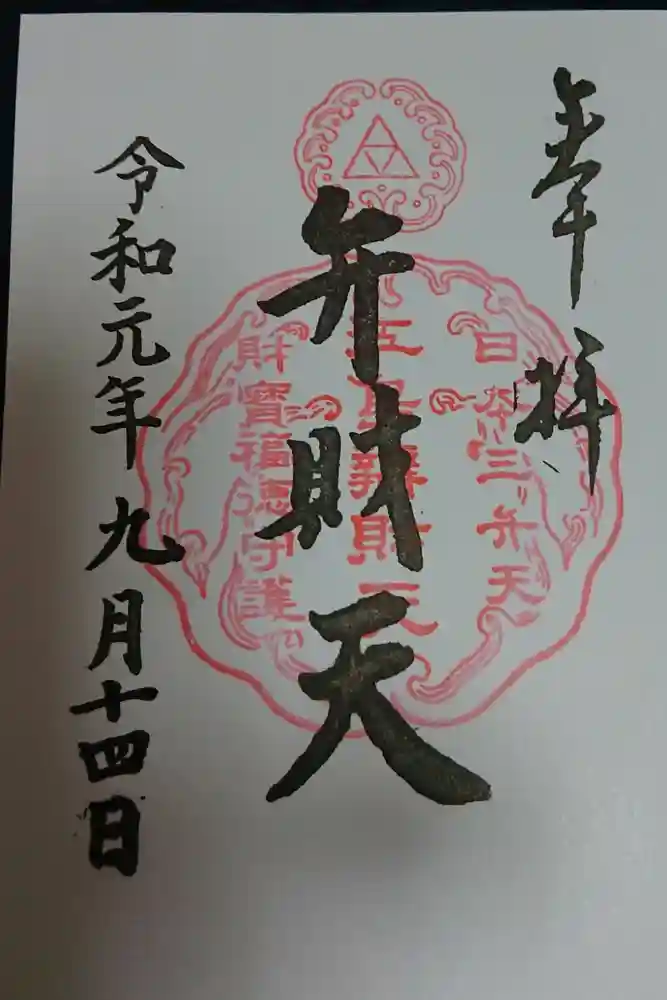 奉拝
日本三弁天
江島辨財天
財寶福徳守護
弁財天
令和元年九月十四日